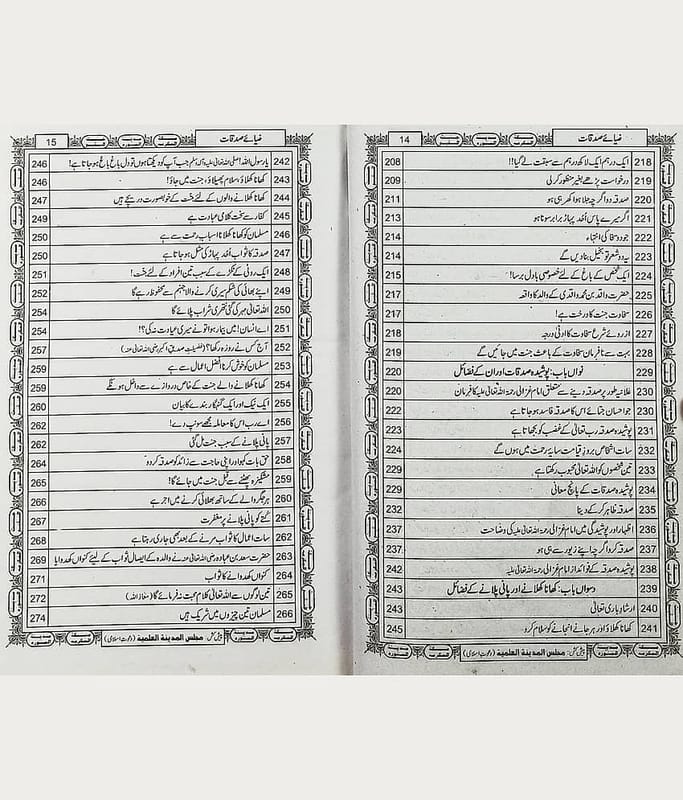 ضیائے صدقات 14
218 ایک درہم ایک لاکھ درہم سے سبقت لے گیا!! 208
219 درخواست پڑھے بغیر منظور کر لی 209
220 صدقہ دو اگرچہ جلا ہوا کھر ہی ہو 211
221 اگر میرے پاس اُحد پہاڑ برابر سونا ہو 213
222 جود و سخا کی انتہاء 214
223 یہ دو شعر تو بخیل بنا دیں گے 214
224 ایک شخص کے باغ کے لئے خصوصی بادل برسا! 215
225 حضرت واقد بن محمد واقدی کے والد کا واقعہ 217
226 سخاوت جنت کا درخت ہے! 217
227 از روئے شرع سخاوت کا ادنیٰ درجہ 218
228 بہت سے نافرمان سخاوت کے باعث جنت میں جائیں گے 219
229 نواں باب: پوشیدہ صدقات اور ان کے فضائل 220
230 علانیہ طور پر صدقہ دینے سے متعلق امام غزالی رحمۃ اللہ تعالیٰ علیہ کا فرمان 220
230 جو احسان جتائے اس کا صدقہ فاسد ہو جاتا ہے 222
231 پوشیدہ صدقہ رب تعالیٰ کے غضب کو بجھاتا ہے 223
232 سات اشخاص بروزِ قیامت سایۂ رحمت میں ہوں گے 224
233 تین شخصوں کو اللہ تعالیٰ محبوب رکھتا ہے 229
234 پوشیدہ صدقات کے پانچ معانی 229
235 صدقہ ظاہر کر کے دینا 232
236 اظہار اور پوشیدگی میں امام غزالی رحمۃ اللہ تعالیٰ علیہ کی وضاحت 237
237 صدقہ کرو اگرچہ اپنے زیور سے ہی ہو 237
238 پوشیدہ صدقہ کے فوائد از امام غزالی رحمۃ اللہ تعالیٰ علیہ 242
239 دسواں باب: کھانا کھلانے اور پانی پلانے کے فضائل 243
240 ارشادِ باری تعالیٰ 243
241 کھانا کھلاؤ اور ہر جانے انجانے کو سلام کرو 245
پیش کش: مجلس المدینۃ العلمیۃ (دعوتِ اسلامی)
ضیائے صدقات 15
242 یا رسول اللہ! صلی اللہ تعالیٰ علیہ وآلہ وسلم جب آپ کو دیکھتا ہوں تو دل باغ باغ ہو جاتا ہے! 246
243 کھانا کھلاؤ، سلام پھیلاؤ، جنت میں جاؤ! 246
244 کھانا کھلانے والوں کے لئے جنت کے خوبصورت دریچے ہیں 247
245 کفار سے سخت کلامی عبادت ہے 249
246 مسلمان کو کھانا کھلانا اسبابِ رحمت سے ہے 250
247 صدقہ کا ثواب اُحد پہاڑ کی مثل ہو جاتا ہے 250
248 ایک روٹی کے ٹکڑے کے سبب تین افراد کے لئے جنت! 251
249 اپنے بھائی کی شکم سیری کرنے والا جہنم سے محفوظ رہے گا 252
250 اللہ تعالیٰ مہر کی گئی نتھری شراب پلائے گا 254
251 اے انسان! میں بیمار ہوا تو نے میری عیادت نہ کی؟! 254
252 آج کس نے روزہ رکھا؟ (فضیلتِ صدیقِ اکبر رضی اللہ تعالیٰ عنہ) 257
253 مسلمان کو خوش کرنا افضل اعمال سے ہے 259
254 کھانا کھلانے والے جنت کے خاص دروازے سے داخل ہونگے 259
255 ایک نیک اور ایک گنہگار بندے کا بیان 260
256 اے رب اس کا معاملہ مجھے سونپ دے! 262
257 پانی پلانے کے سبب جنت مل گئی 262
258 حق بات کہو اور اپنی حاجت سے زائد کو صدقہ کر دو 264
259 مشکیزہ پھٹنے سے قبل جنت میں جائے گا! 265
260 ہر جگر والے کے ساتھ بھلائی کرنے میں اجر ہے 266
261 کُتے کو پانی پلانے پر مغفرت 267
262 سات اعمال کا ثواب مرنے کے بعد بھی جاری رہتا ہے 268
263 حضرت سعد بن عبادہ رضی اللہ تعالیٰ عنہ نے والدہ کے ایصالِ ثواب کے لیئے کنواں کھدوایا 269
264 کنواں کھدوانے کا ثواب 271
265 تین لوگوں سے اللہ تعالیٰ کلامِ محبت نہ فرمائے گا (معاذ اللہ) 272
266 مسلمان تین چیزوں میں شریک ہیں 274
پیش کش: مجلس المدینۃ العلمیۃ (دعوتِ اسلامی)